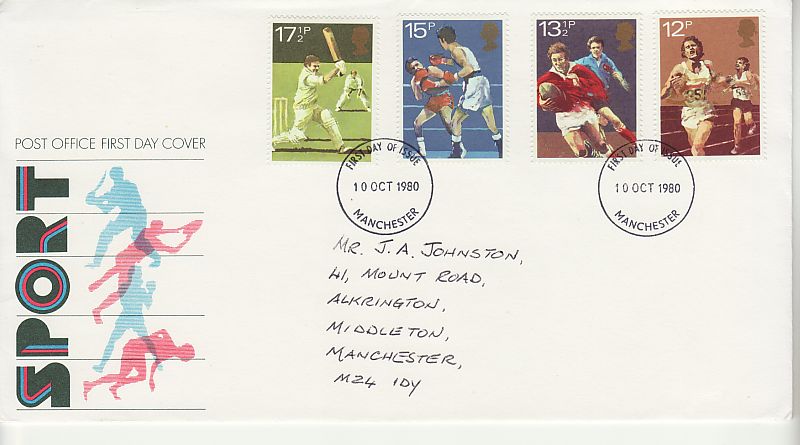 17½P
15P
13½P
12P
POST OFFICE FIRST DAY COVER
SPORT
FIRST DAY OF ISSUE
10 OCT 1980
MANCHESTER
FIRST DAY OF ISSUE
10 OCT 1980
MANCHESTER
MR. J. A. JOHNSTON,
41, MOUNT ROAD,
ALKRINGTON,
MIDDLETON,
MANCHESTER,
M24 1DY